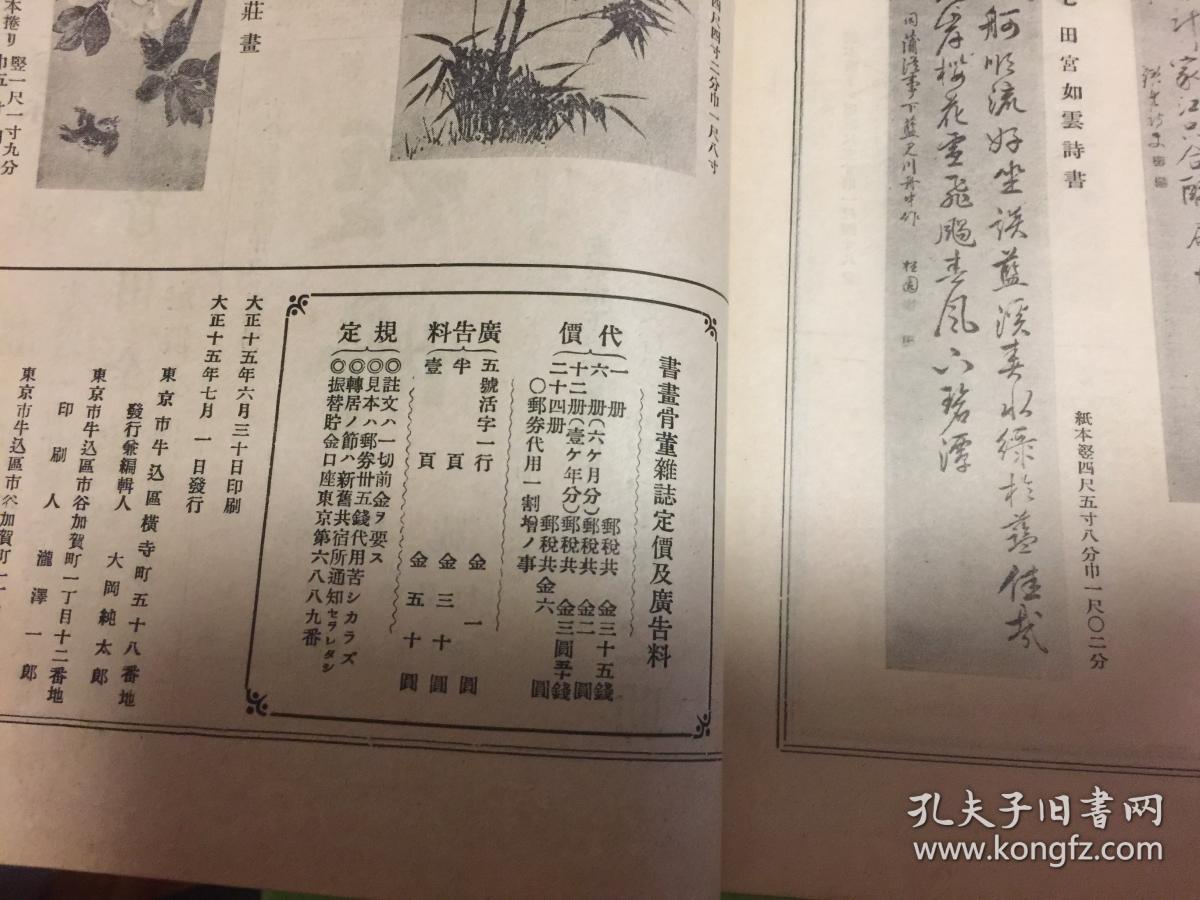 七田宮如雲詩書
紙本竪四尺五寸八分巾一尺〇二分
舸順流好坐談藍溪春水綠於藍佳哉
岸櫻花雪飛颺春風下碧潭
四尺四寸二分巾一尺八寸
莊畫
本捲リ 竪一尺一寸九分
書畫骨董雜誌定價及廣告料
代價
一冊 郵稅共 金三十五錢
六冊(六ヶ月分)郵稅共 金二圓
十二冊(壹ヶ年分)郵稅共 金三圓五十錢
二十四冊 郵稅共金六圓
〇郵券代用一割增ノ事
廣告料
五號活字一行 金一圓
半頁 金三十圓
壹頁 金五十圓
規定
◎註文ハ一切前金ヲ要ス
◎見本ハ郵券卅五錢代用苦シカラズ
◎轉居ノ節ハ新舊共宿所通知セラレタシ
◎振替貯金口座東京第六八八九番
大正十五年六月三十日印刷
大正十五年七月一日發行
東京市牛込區橫寺町五十八番地
發行兼編輯人 大岡純太郎
東京市牛込區市谷加賀町一丁目十二番地
印刷人 瀧澤一郎
東京市牛込區市谷加賀町一丁
孔夫子旧书网
www.kongfz.com